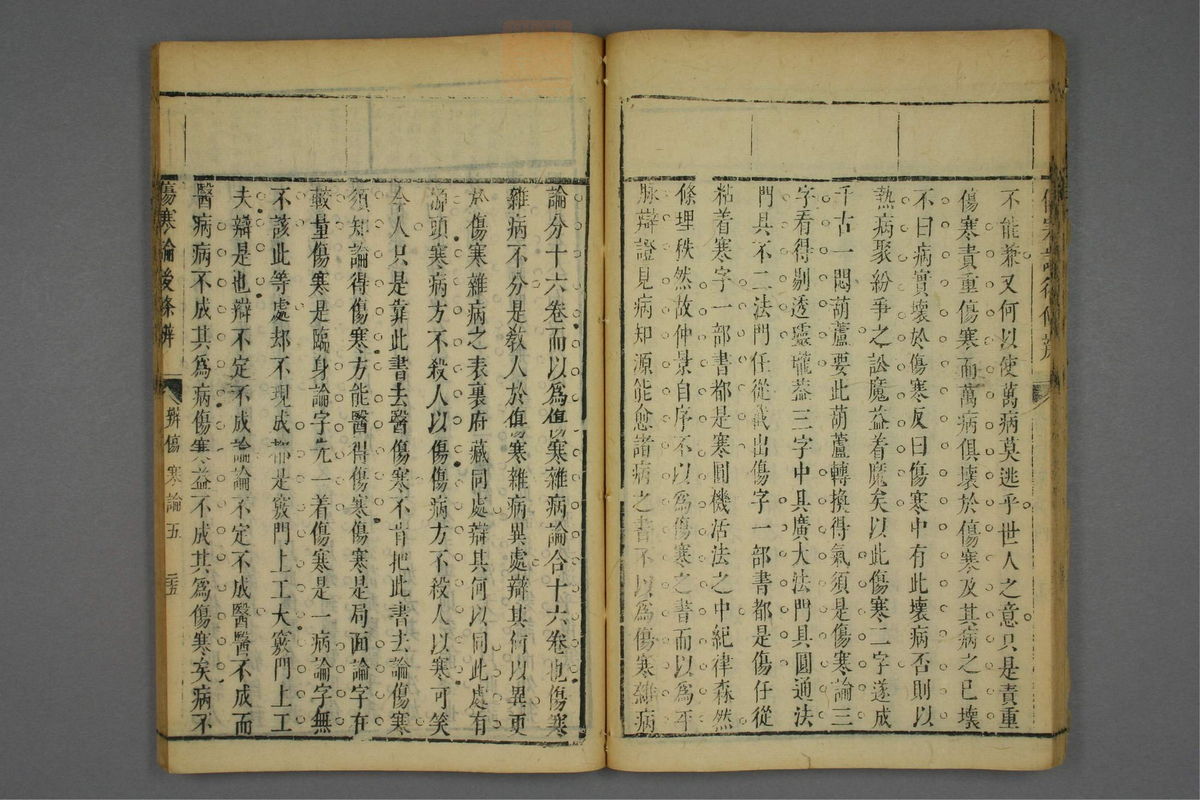 不能兼又何以使萬病莫逃乎世人之意只是責重
傷寒責重傷寒而萬病俱壞於傷寒及其病之已壞
不曰病實壞於傷寒反曰傷寒中有此壞病否則以
熱病聚紛爭之訟魔益着魔矣以此傷寒二字遂成
千古一悶葫蘆要此葫蘆轉換得氣須是傷寒論三
字看得剔透靈瓏蓋三字中具廣大法門具圓通法
門具不二法門任從截出傷字一部書都是傷任從
粘着寒字一部書都是寒圓機活法之中紀律森然
條理秩然故仲景自序不以爲傷寒之書而以爲平
脉辯證見病知源能愈諸病之書不以爲傷寒雜病
論分十六卷而以爲傷寒雜病論合十六卷也傷寒
雜病不分是教人於傷寒雜病異處辯其何以異更
於傷寒雜病之表裏府藏同處辯其何以同此處有
源頭寒病方不殺人以傷傷病方不殺人以寒可笑
今人只是靠此書去醫傷寒不肯把此書去論傷寒
須知論得傷寒方能醫得傷寒傷寒是局面論字在
較量傷寒是臨身論字先一着傷寒是一病論字無
不該此等處却不現成都是竅門上工大竅門上工
夫辯是也辯不定不成論論不定不成醫醫不成而
醫病病不成其爲病傷寒益不成其爲傷寒矣病不
傷寒論後條辨
辨傷寒論五
三五